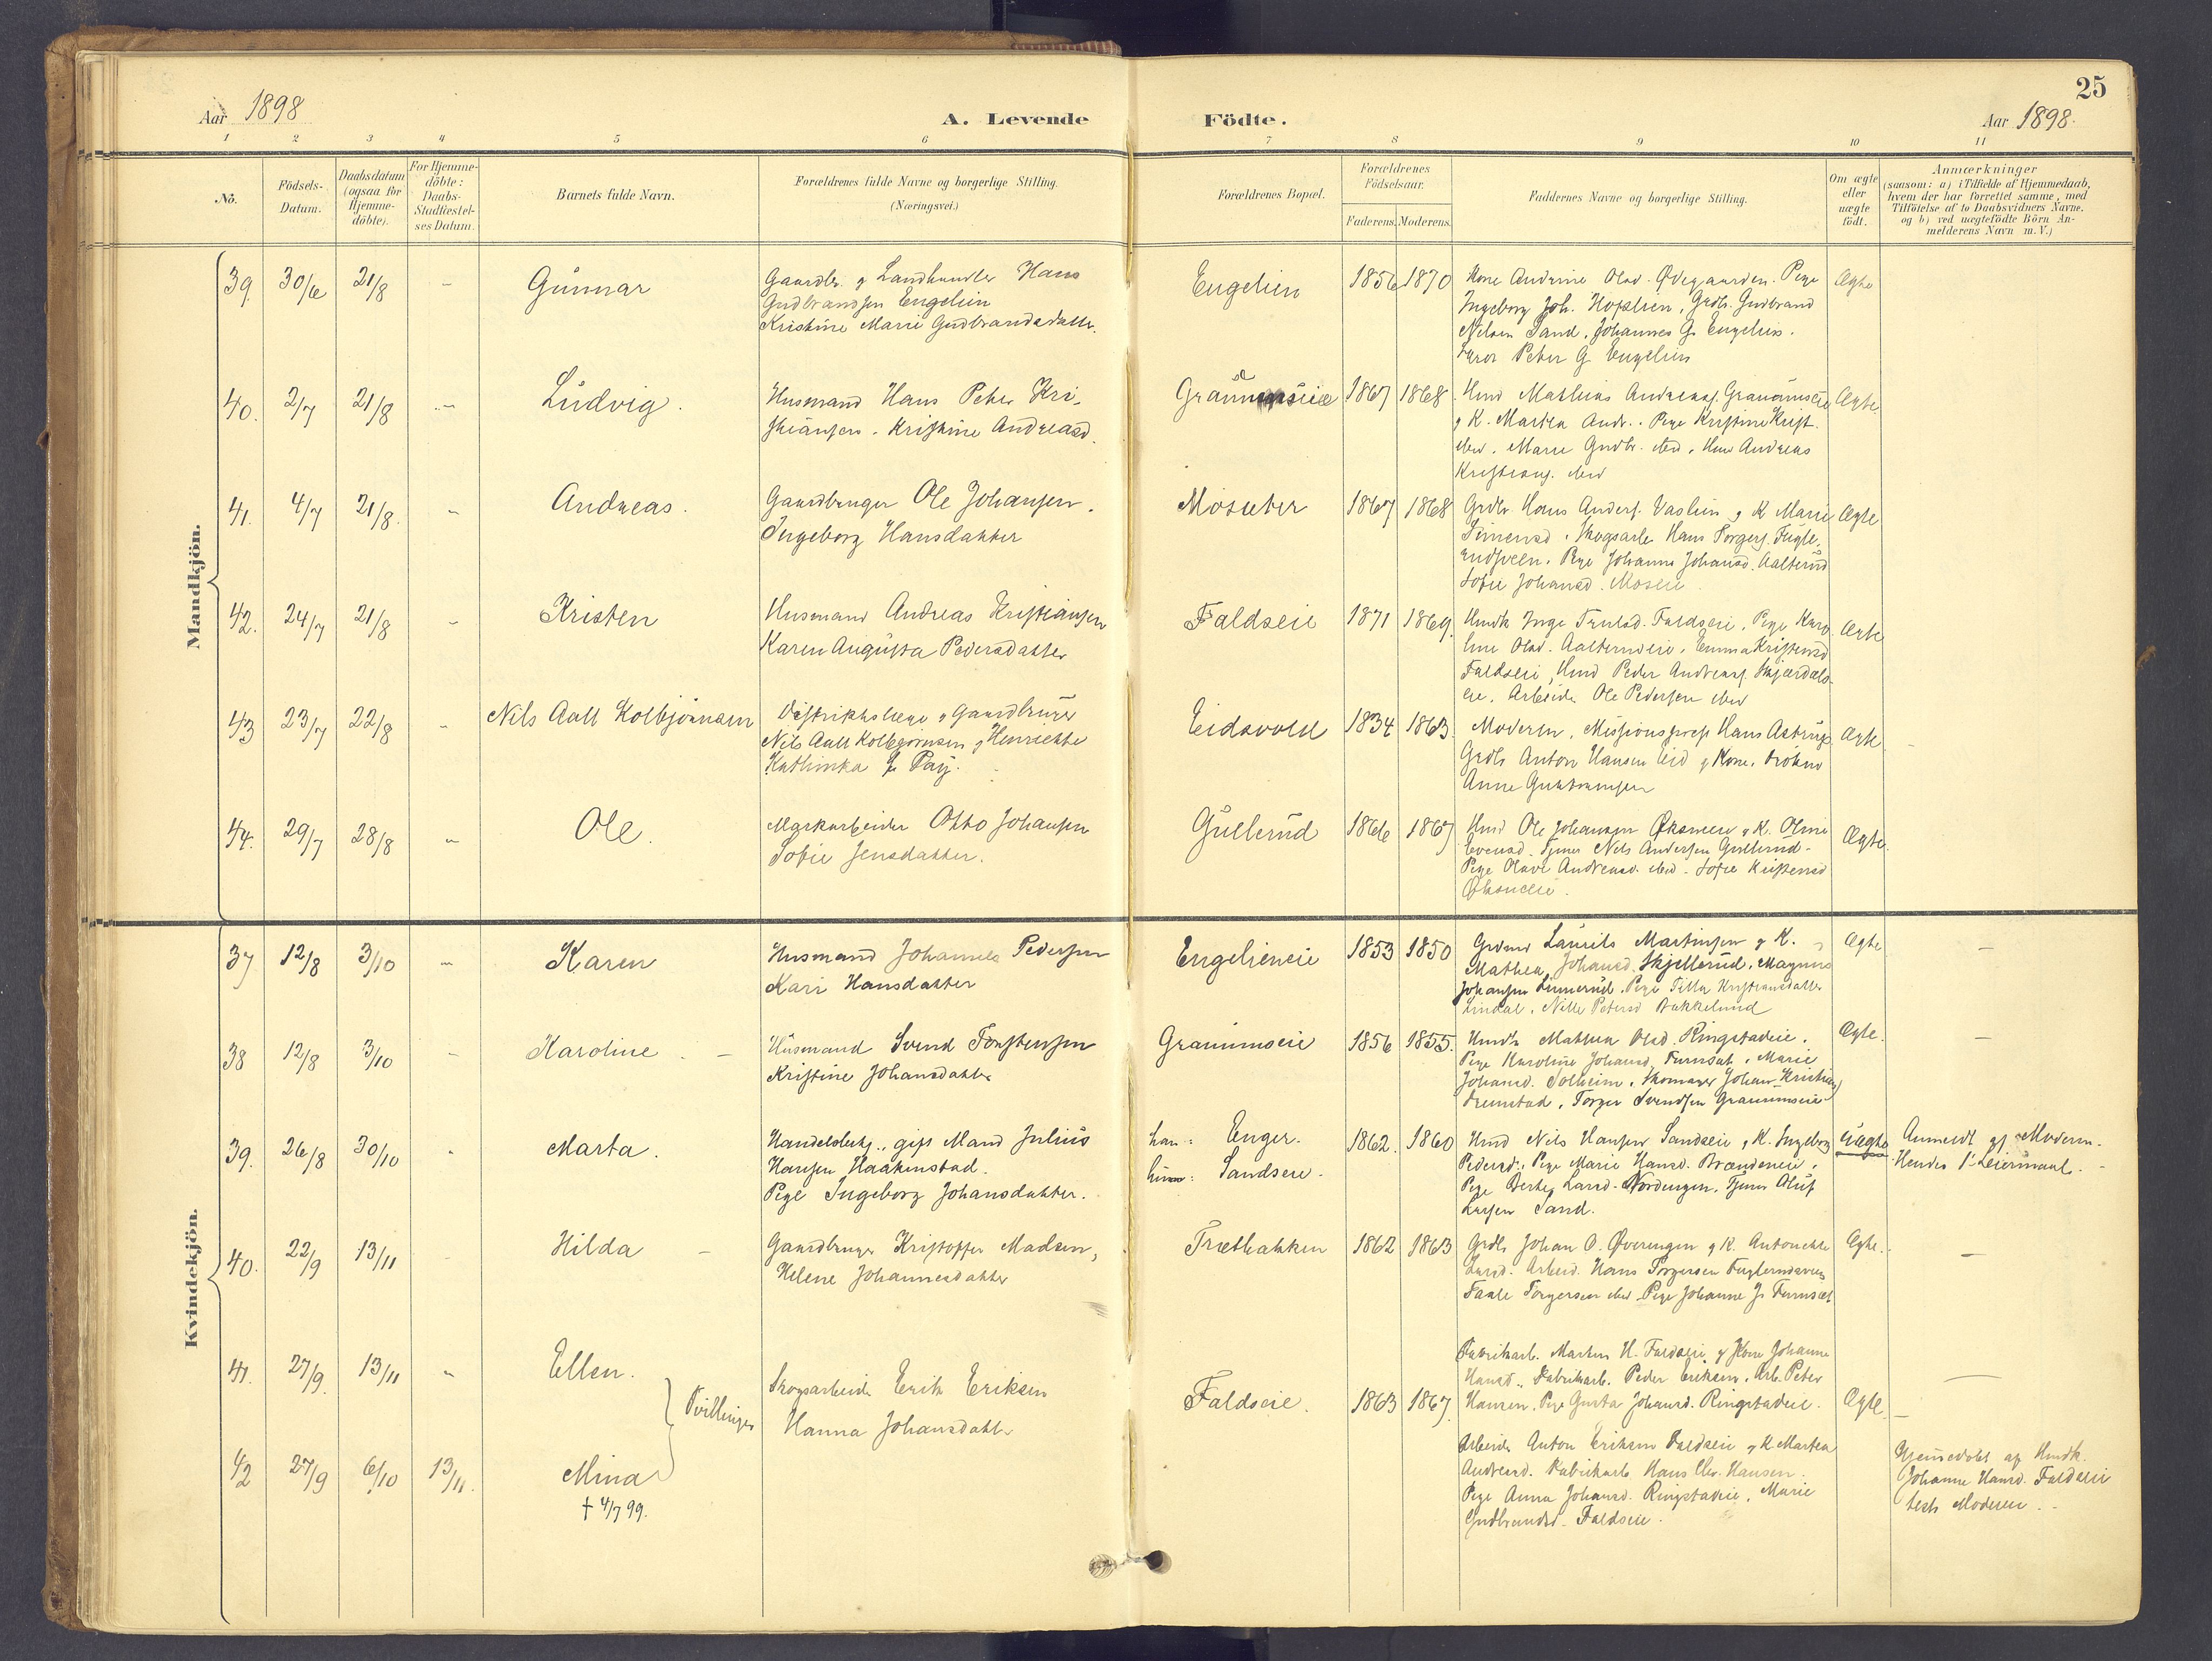 25
Aar 1898
A. Levende Födte.
Aar 1898.
1 2 3 4 5 6 7 8 9 10 11
No.
Födsels-Datum.
Daabsdatum (ogsaa for Hjemme-döbte).
For Hjemme-döbte: Daabs-Stadfæstel-ses Datum.
Barnets fulde Navn.
Forældrenes fulde Navne og borgerlige Stilling. (Næringsvei.)
Forældrenes Bopæl.
Forældrenes Födselsaar.
Faderens. Moderens.
Faddernes Navne og borgerlige Stilling.
Om ægte eller uægte födt.
Anmærkninger
(saasom: a) i Tilfælde af Hjemmedaab,
hvem der har forrettet samme, med
Tilföielse af to Daabsvidners Navne,
og b) ved uægtefödte Börn An-
melderens Navn m. V.)
Mandkjön.
39. 30/6 21/8 - Gunnar
Gaardbr. og Landhandler Hans
Gudbrandsen Engelien
Kristine Marie Gudbrandsdatter.
Engelien 1856 1870
Kone Andrine Olsd. Ødegaarden. Pige
Ingeborg Joh. Grdbr. Gudbrand
Nilsen Sand, Johannes G. Engelien.
Peter G. Engelien
Ægte
40. 2/7 21/8 - Ludvig.
Husmand Hans Peter Kri-
stiansen. Kristine Andreasd.
1867 1868
Hmd Mathias Andreass.
og K. Marthea Andr. Pige Kristine Krist.
ibid. Marie Gudbr. ibid. Hmd Andreas
Kristians. ibid
Ægte
41. 4/7 21/8. - Andreas.
Gaardbruger Ole Johansen.
Ingeborg Hansdatter
Mosæter 1867 1868
Grdbr. Hans Anders. Vaslien og K. Marie
Simensd. Skogsarb. Hans Torgers. Fugle-
Pige Johanne Johansd.
Sofie Johansd.
Ægte
42. 24/7 21/8 - Kristen
Husmand Andreas Kristiansen
Karen Augusta Pedersdatter
Faldseie 1871 1869.
Hmdk Inge Trulsd. Faldseie. Pige Karo-
line Olsd. Emma Kristensd
Faldseie, Hmd Peder Andreass. Skjærdals-
eie. Arbeider Ole Pedersen ibid
Ægte
43 23/7 22/8 - Nils Aall Kolbjörnsen
Distriktslæge og Gaardbruger
Nils Aall Kolbjörnsen og Henriette
Kathinka f. Pay.
Eidsvold 1834 1863
Moderen, Missionsprest Hans Astrup
Grdbr Anton Hansen Eid og Kone. Fröken
Anne
Ægte
44. 29/7 28/8 - Ole.
Markarbeider Otto Johansen
Sofie Jensdatter.
Gullerud 1866 1867
Hmd Ole Johansen og K. Oline
Evensd. Tjener Nils Andersen Gullerud.
Pige Olave Andreasd. ibid. Sofie Kristensd
Ægte.
Kvindekjön.
37 12/8 3/10 - Karen
Husmand Johannes Pedersen
Kari Hansdatter
Engelieneie 1853 1850
Laurits Martinsen og K.
Mathea Johansd. Skjellerud. Magnus
Johansen Linnerud. Pige Tilla Kristiansdatter
Lindal. Nille Petersd Bakkelund
Ægte -
38 12/8 3/10 - Karoline. -
Husmand Svend Torstensen
Kristine Johansdatter
Graunumseie 1856 1855.
Hmdk Mathea Olsd. Ringstadeie.
Pige Karoline Johansd. Furusæt. Marie
Johansd. Solheim. Skomager Johan Kristians
Fremstad. Torger Svendsen Graunumseie
Ægte. -
39. 26/8 30/10 . Marta.
Handelsbetj., gift Mand Julius
Hansen Haakenstad.
Pige Ingeborg Johansdatter.
han: Enger.
hun: Sandseie.
1862. 1860
Hmd Nils Hansen Sandseie og K. Ingeborg
Pedersd. Pige Marie Hansd. Brændeneie.
Pige Berthe Larsd. Nordengen. Tjener Oluf
Larsen Sand.
Uægte
Anmeldt af Moderen.
Hendes 1ste Leiermaal.
40. 22/9 13/11 - Hilda -
Gaardbruger Kristoffer Madsen,
Helene Johannesdatter
Trætbakken 1862 1863
Grdbr Johan O. Øverengen og K. Antonette
Larsd. Arbeid. Hans Torgersen
Torgersen ibid. Pige Johanne J. Furusæt
Ægte. -
41. 27/9. 13/11 - Ellen.
Tvillinger
Skogsarbeider Erik Eriksen
Hanna Johansdatter
Faldseie. 1863 1867.
Fabrikarb. Martin H. Faldseie og Kone Johanne
Hansd. Fabrikarb. Peder Eriksen. Arb. Peter
Hansen. Pige Gusta Johansd. Ringstadeie.
Ægte. -
42 27/9 6/10 13/11. Mina
† 4/7 99.
Arbeider Anton Eriksen Faldseie og K. Marthea
Andreasd. Fabrikarb. Hans Chr. Hansen.
Pige Anna Johansd. Ringstadeie, Marie
Gudbrandsd. Faldseie.
Hjemmedöbt af Hmdk.
Johanne Hansd. Faldseie
Moderen.